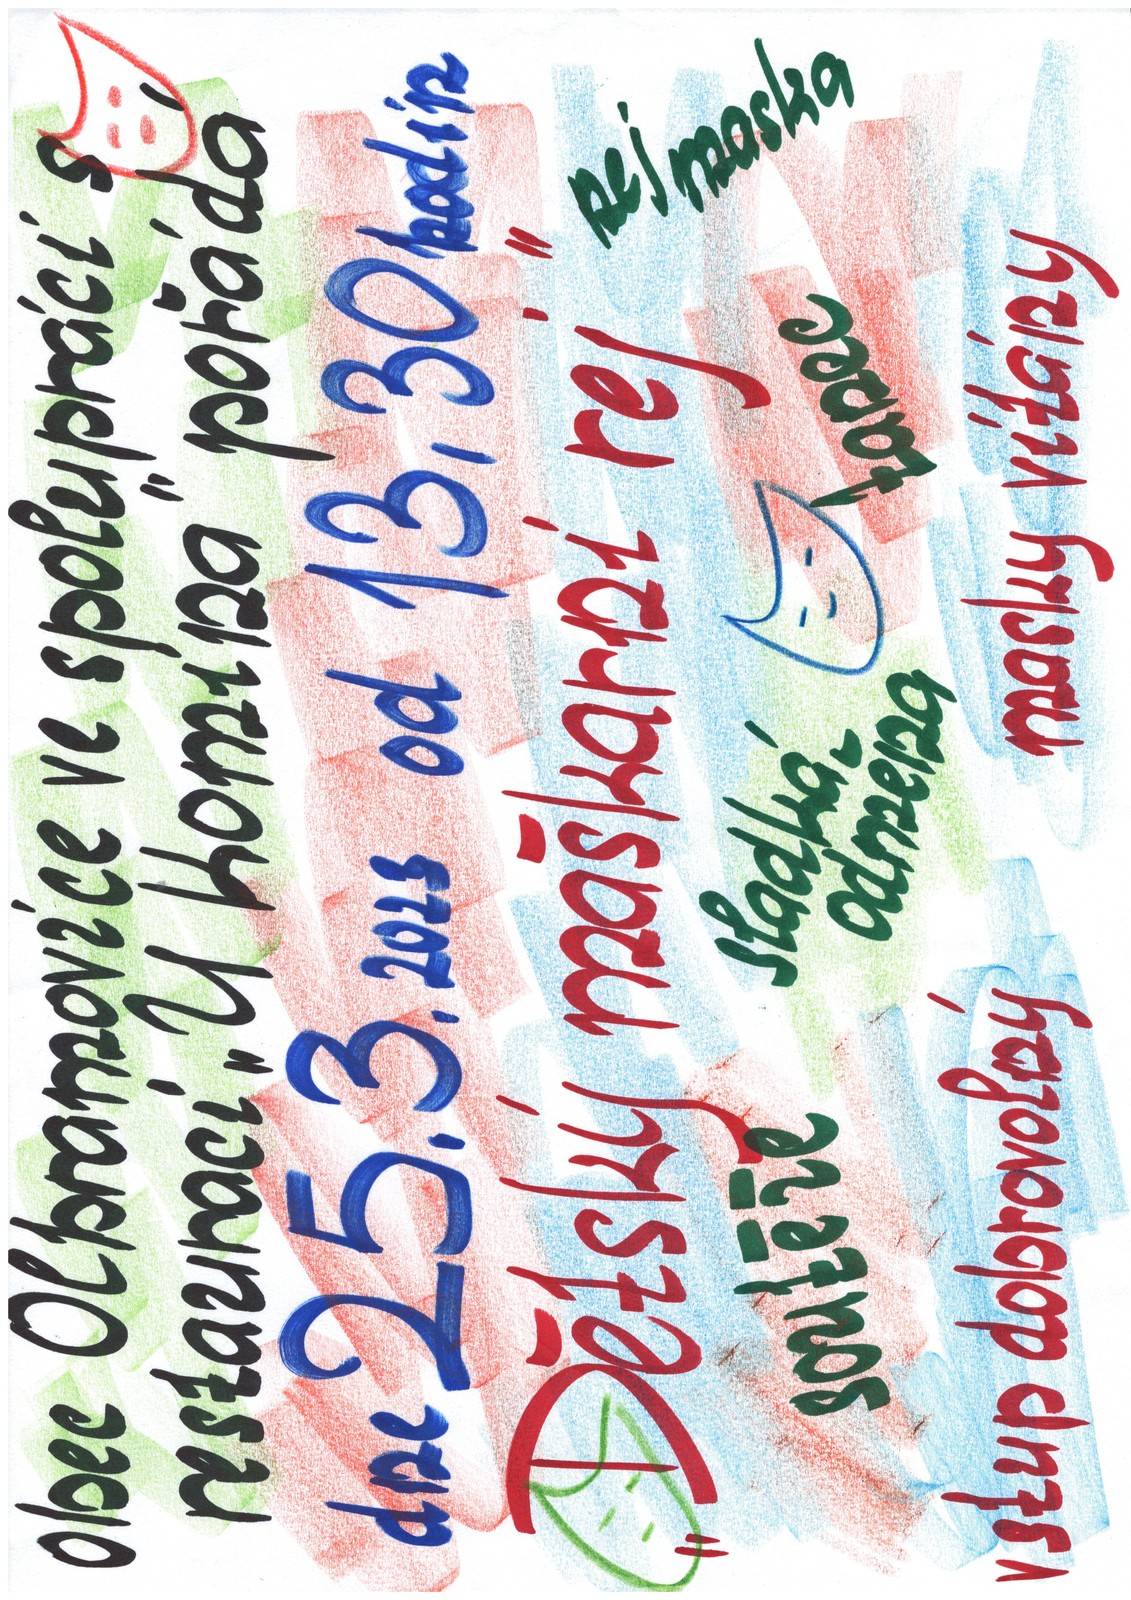 obec Olbramovice ve spolupráci s
restaurací „U komína" pořádá
dne 25.3.2023 od 13,30 hodin
„Dětský maškarní rej"
soutěže
sladká
odměna
tanec
rej
maska
vstup dobrovolný
masky vítány